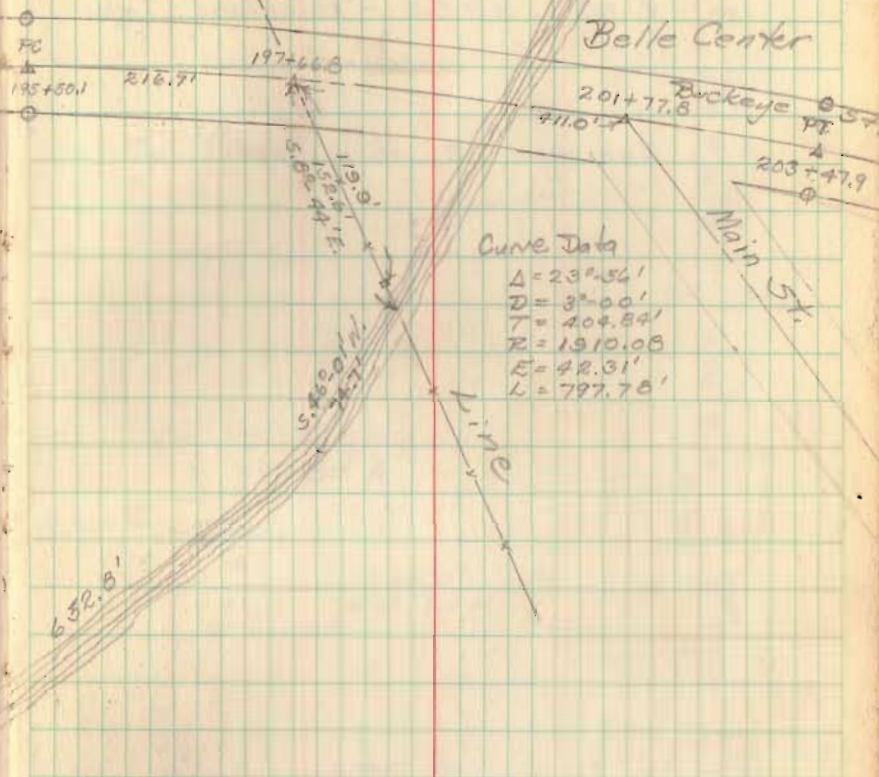 Belle Center
PC
195+50.1
216.7'
197+66.8
201+77.8
411.0'
Buckeye St.
PT.
203+47.9
119.9'
152.6'
Main St.
Curve Data
Δ = 23°-56'
D = 3°-00'
T = 404.84'
R = 1910.08
E = 42.31'
L = 797.78'
S.46°-01'W.
74.7'
Line
632.8'